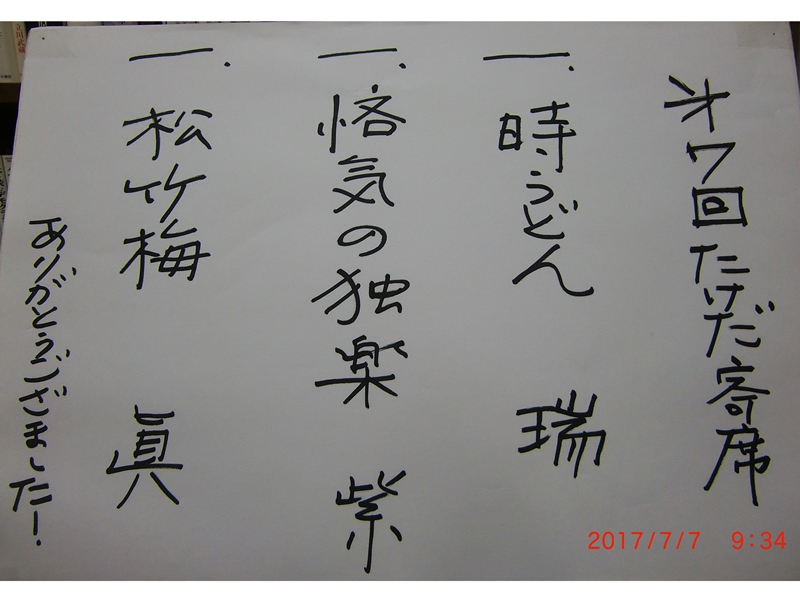 才7回たけだ寄席
一、時うどん 瑞
一、悋気の独楽 紫
一、松竹梅 眞
ありがとうございました！
2017/7/7 9:34